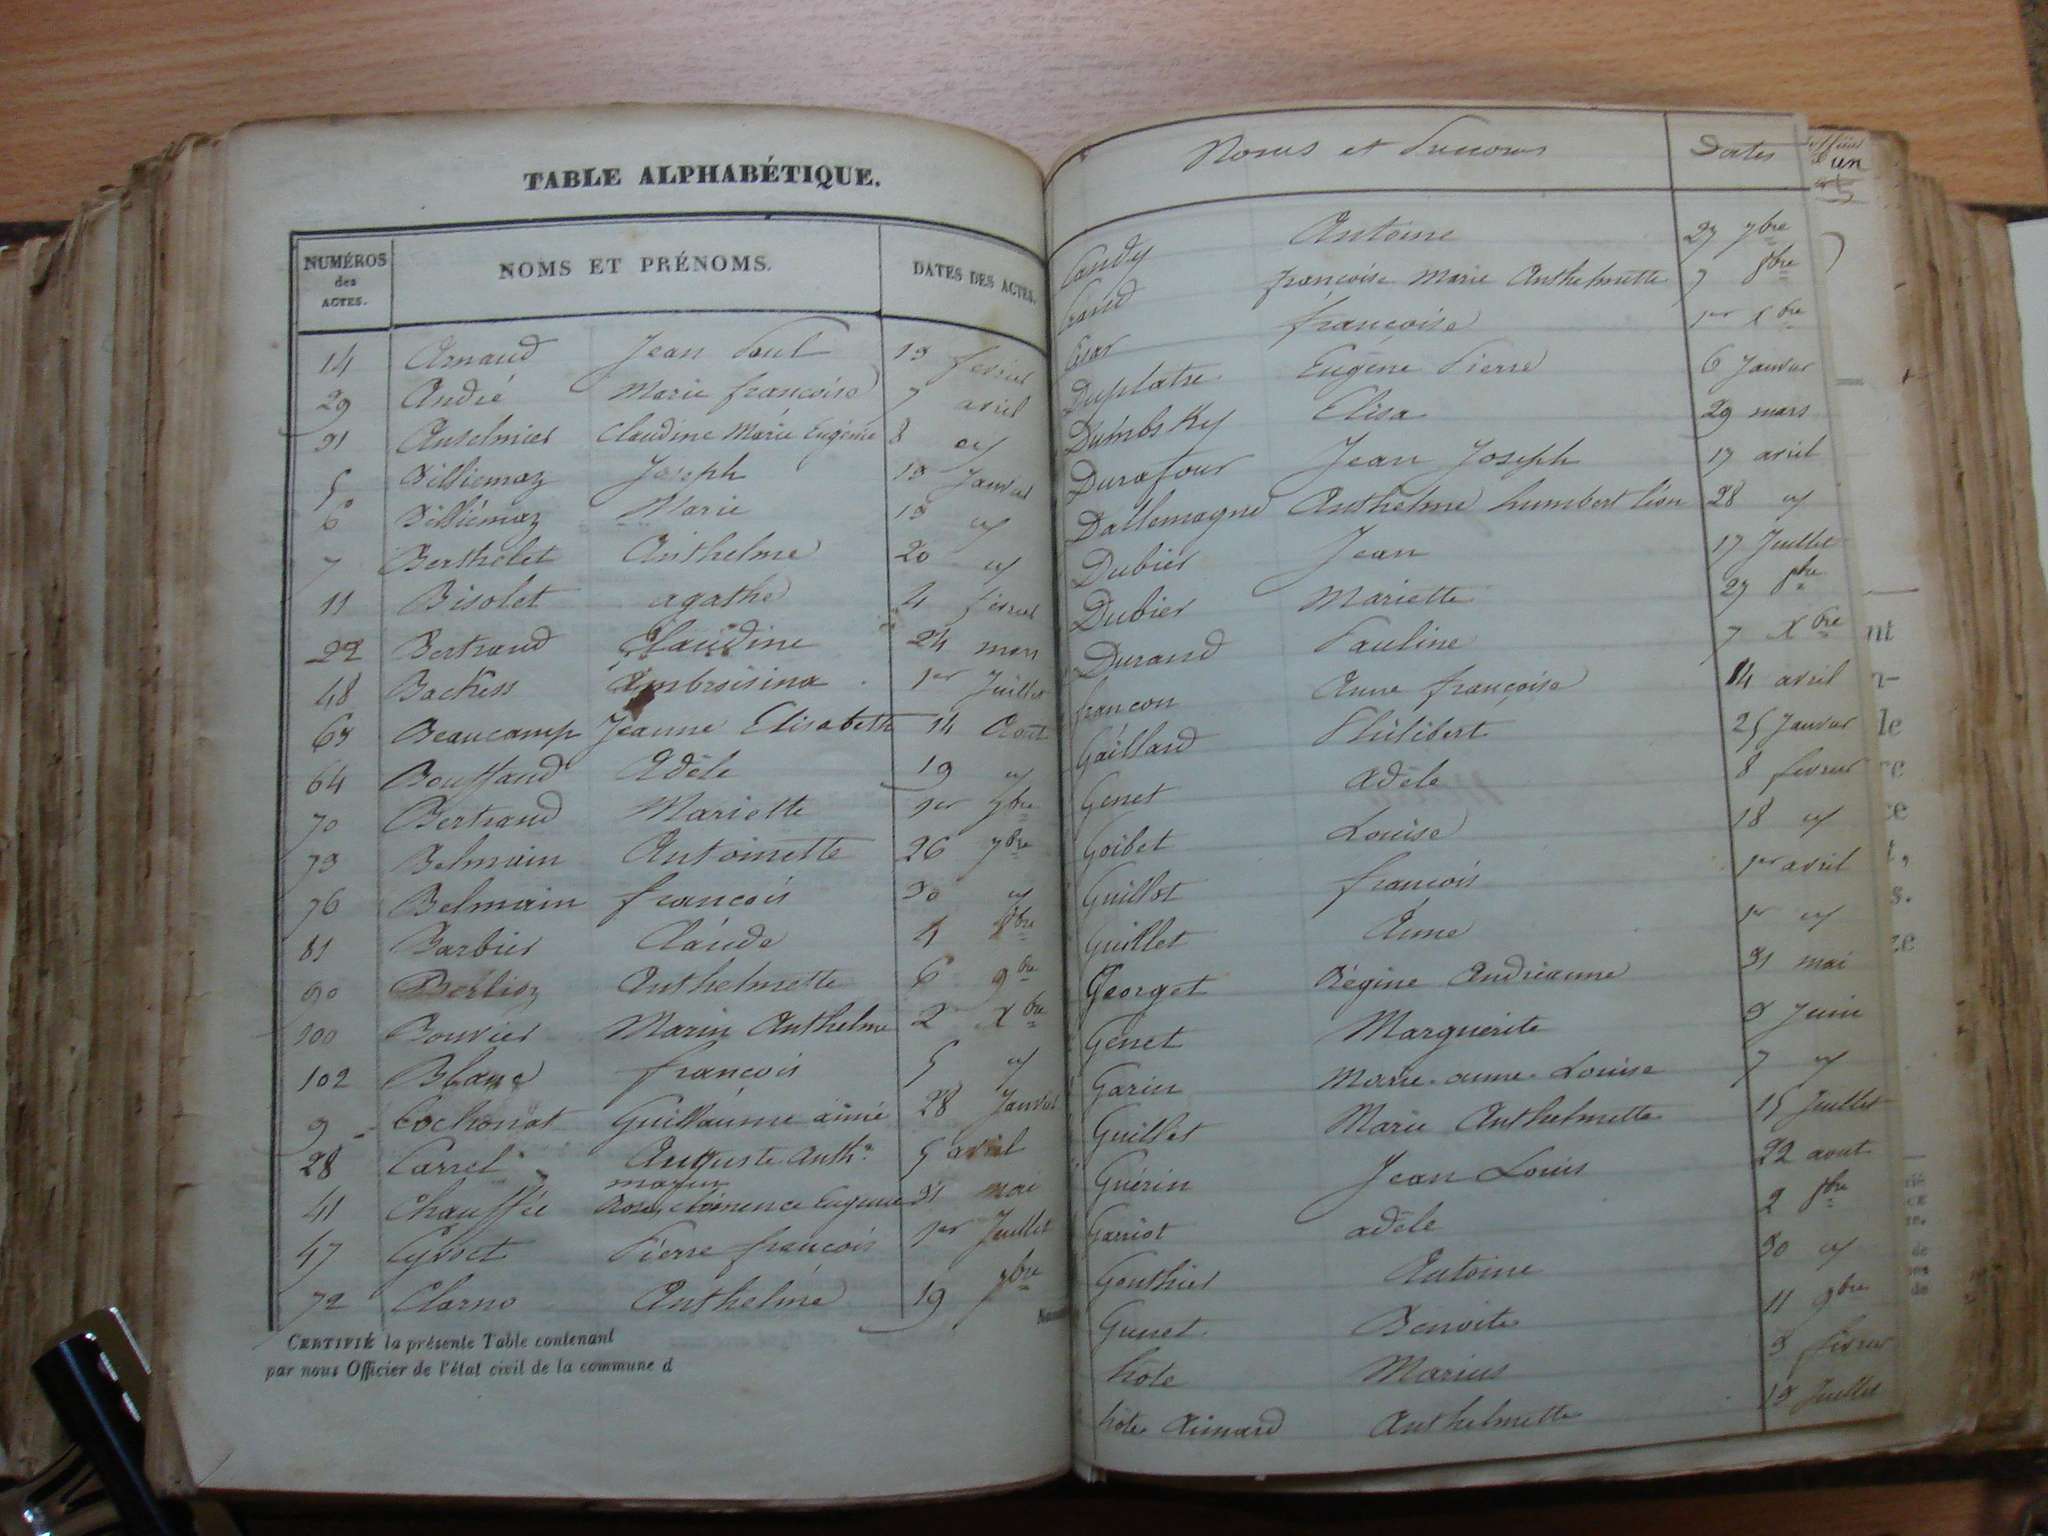 TABLE ALPHABÉTIQUE.
NUMÉROS des ACTES. NOMS ET PRÉNOMS. DATES DES ACTES.
14 Arnaud Jean Paul 19 fevrier
29 André Marie françoise 7 avril
31 Anselmier Claudine Marie Eugénie 8 id
5 Billiemaz Joseph 19 Janvier
6 Billiémaz Marie 19 id
7 Berthelet Anthelme 20 id
11 Bisolet agathe 4 février
22 Bertrand Claudine 24 mars
48 Backess Ambroisina 1er Juillet
63 Beaucamp Jeanne Elisabeth 14 Aout
64 Bouffard Adèle 19 id
70 Bertrand Mariette 1er 7bre
73 Belmain Antoinette 26 7bre
76 Belmain françois 30 id
81 Barbier Claude 4 8bre
90 Berlioz Anthelmette 6 9bre
100 Bouvier Marin Anthelme 2 Xbre
102 Blanc françois 5 id
9 Cochonat Guillaume aimé 28 Janvier
28 Carrel Auguste Anth.e
5 avril
41 Chauffée Rose, Clémence Eugénie 31 mai
47 Cyvoct Pierre françois 1er Juillet
72 Clarno Anthelme 19 7bre
CERTIFIÉ la présente Table contenant
par nous Officier de l'état civil de la commune d
Noms et Prenoms Dates
Candy Antoine 27 7bre
françoise Marie Anthelmette 7 8bre
françoise 1er Xbre
Duplatre Eugène Pierre 6 Janvier
Dumbsky Elisa 29 mars
Durafour Jean Joseph 17 avril
Dallemagne Anthelme humbert léon 28 id
Dubier Jean 17 Juillet
Dubier Mariette 27 8bre
Durand Pauline 7 Xbre
françon Anne françoise 14 avril
Gaillard Philibert 25 Janvier
Genet Adèle 8 fevrier
Goibet Louise 18 id
Guillot françois 1er avril
Guillet Anne 1er id
Georget Régine Andréanne 31 mai
Genet Marguerite 3 Juin
Garin Marie-anne-Louise 7 id
Guillet Marie Anthelmette 15 Juillet
Guérin Jean Louis 22 aout
Garriot adèle 2 8bre
Gonthier Antoine 30 id
Gunet Benoite 11 9bre
hôte Marius 3 fevrier
hôte Aimard Anthelmette 19 Juillet